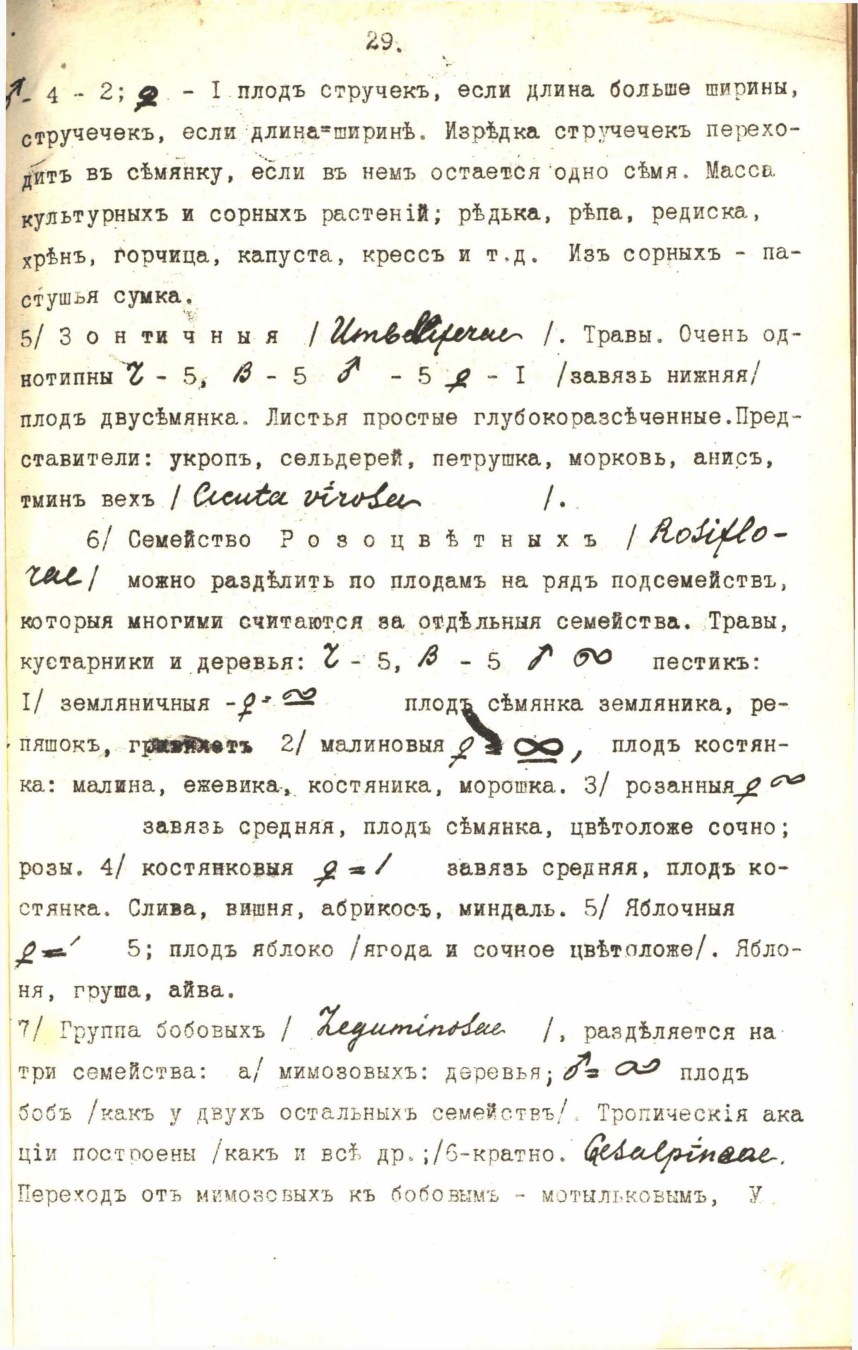 29.
♂- 4 - 2; ♀ - I плодъ стручекъ, если длина больше ширины,
стручечекъ, если длина=ширинѣ. Изрѣдка стручечекъ перехо-
дитъ въ сѣмянку, если въ немъ остается одно сѣмя. Масса
культурныхъ и сорныхъ растеній; рѣдька, рѣпа, редиска,
хрѣнъ, горчица, капуста, крессъ и т.д. Изъ сорныхъ - па-
стушья сумка.
5/ З о н т и ч н ы я / Umbelliferae /. Травы. Очень од-
нотипны Ɀ - 5, В - 5 ♂ - 5 ♀ - I /завязь нижняя/
плодъ двусѣмянка. Листья простые глубокоразсѣченные.Пред-
ставители: укропъ, сельдерей, петрушка, морковь, анисъ,
тминъ вехъ / Cicuta virosa /.
6/ Семейство Р о з о ц в ѣ т н ы х ъ / Rosiflo-
rae / можно раздѣлить по плодамъ на рядъ подсемействъ,
которыя многими считаются за отдѣльныя семейства. Травы,
кустарники и деревья: Ɀ - 5, В - 5 ♂ ∞ пестикъ:
I/ земляничныя -♀- ∞ плодъ сѣмянка земляника, ре-
пяшокъ, 2/ малиновыя ♀ = ∞, плодъ костян-
ка: малина, ежевика, костяника, морошка. 3/ розанныя ♀ ∞
завязь средняя, плодъ сѣмянка, цвѣтоложе сочно;
розы. 4/ костянковыя ♀ = / завязь средняя, плодъ ко-
стянка. Слива, вишня, абрикосъ, миндаль. 5/ Яблочныя
♀ = 5; плодъ яблоко /ягода и сочное цвѣтоложе/. Ябло-
ня, груша, айва.
7/ Группа бобовыхъ / Leguminosae /, раздѣляется на
три семейства: а/ мимозовыхъ: деревья; ♂= ∞ плодъ
бобъ /какъ у двухъ остальныхъ семействъ/. Тропическія ака
ціи построены /какъ и всѣ др.;/6-кратно. Cesalpineae.
Переходъ отъ мимозовыхъ къ бобовымъ - мотыльковымъ, У